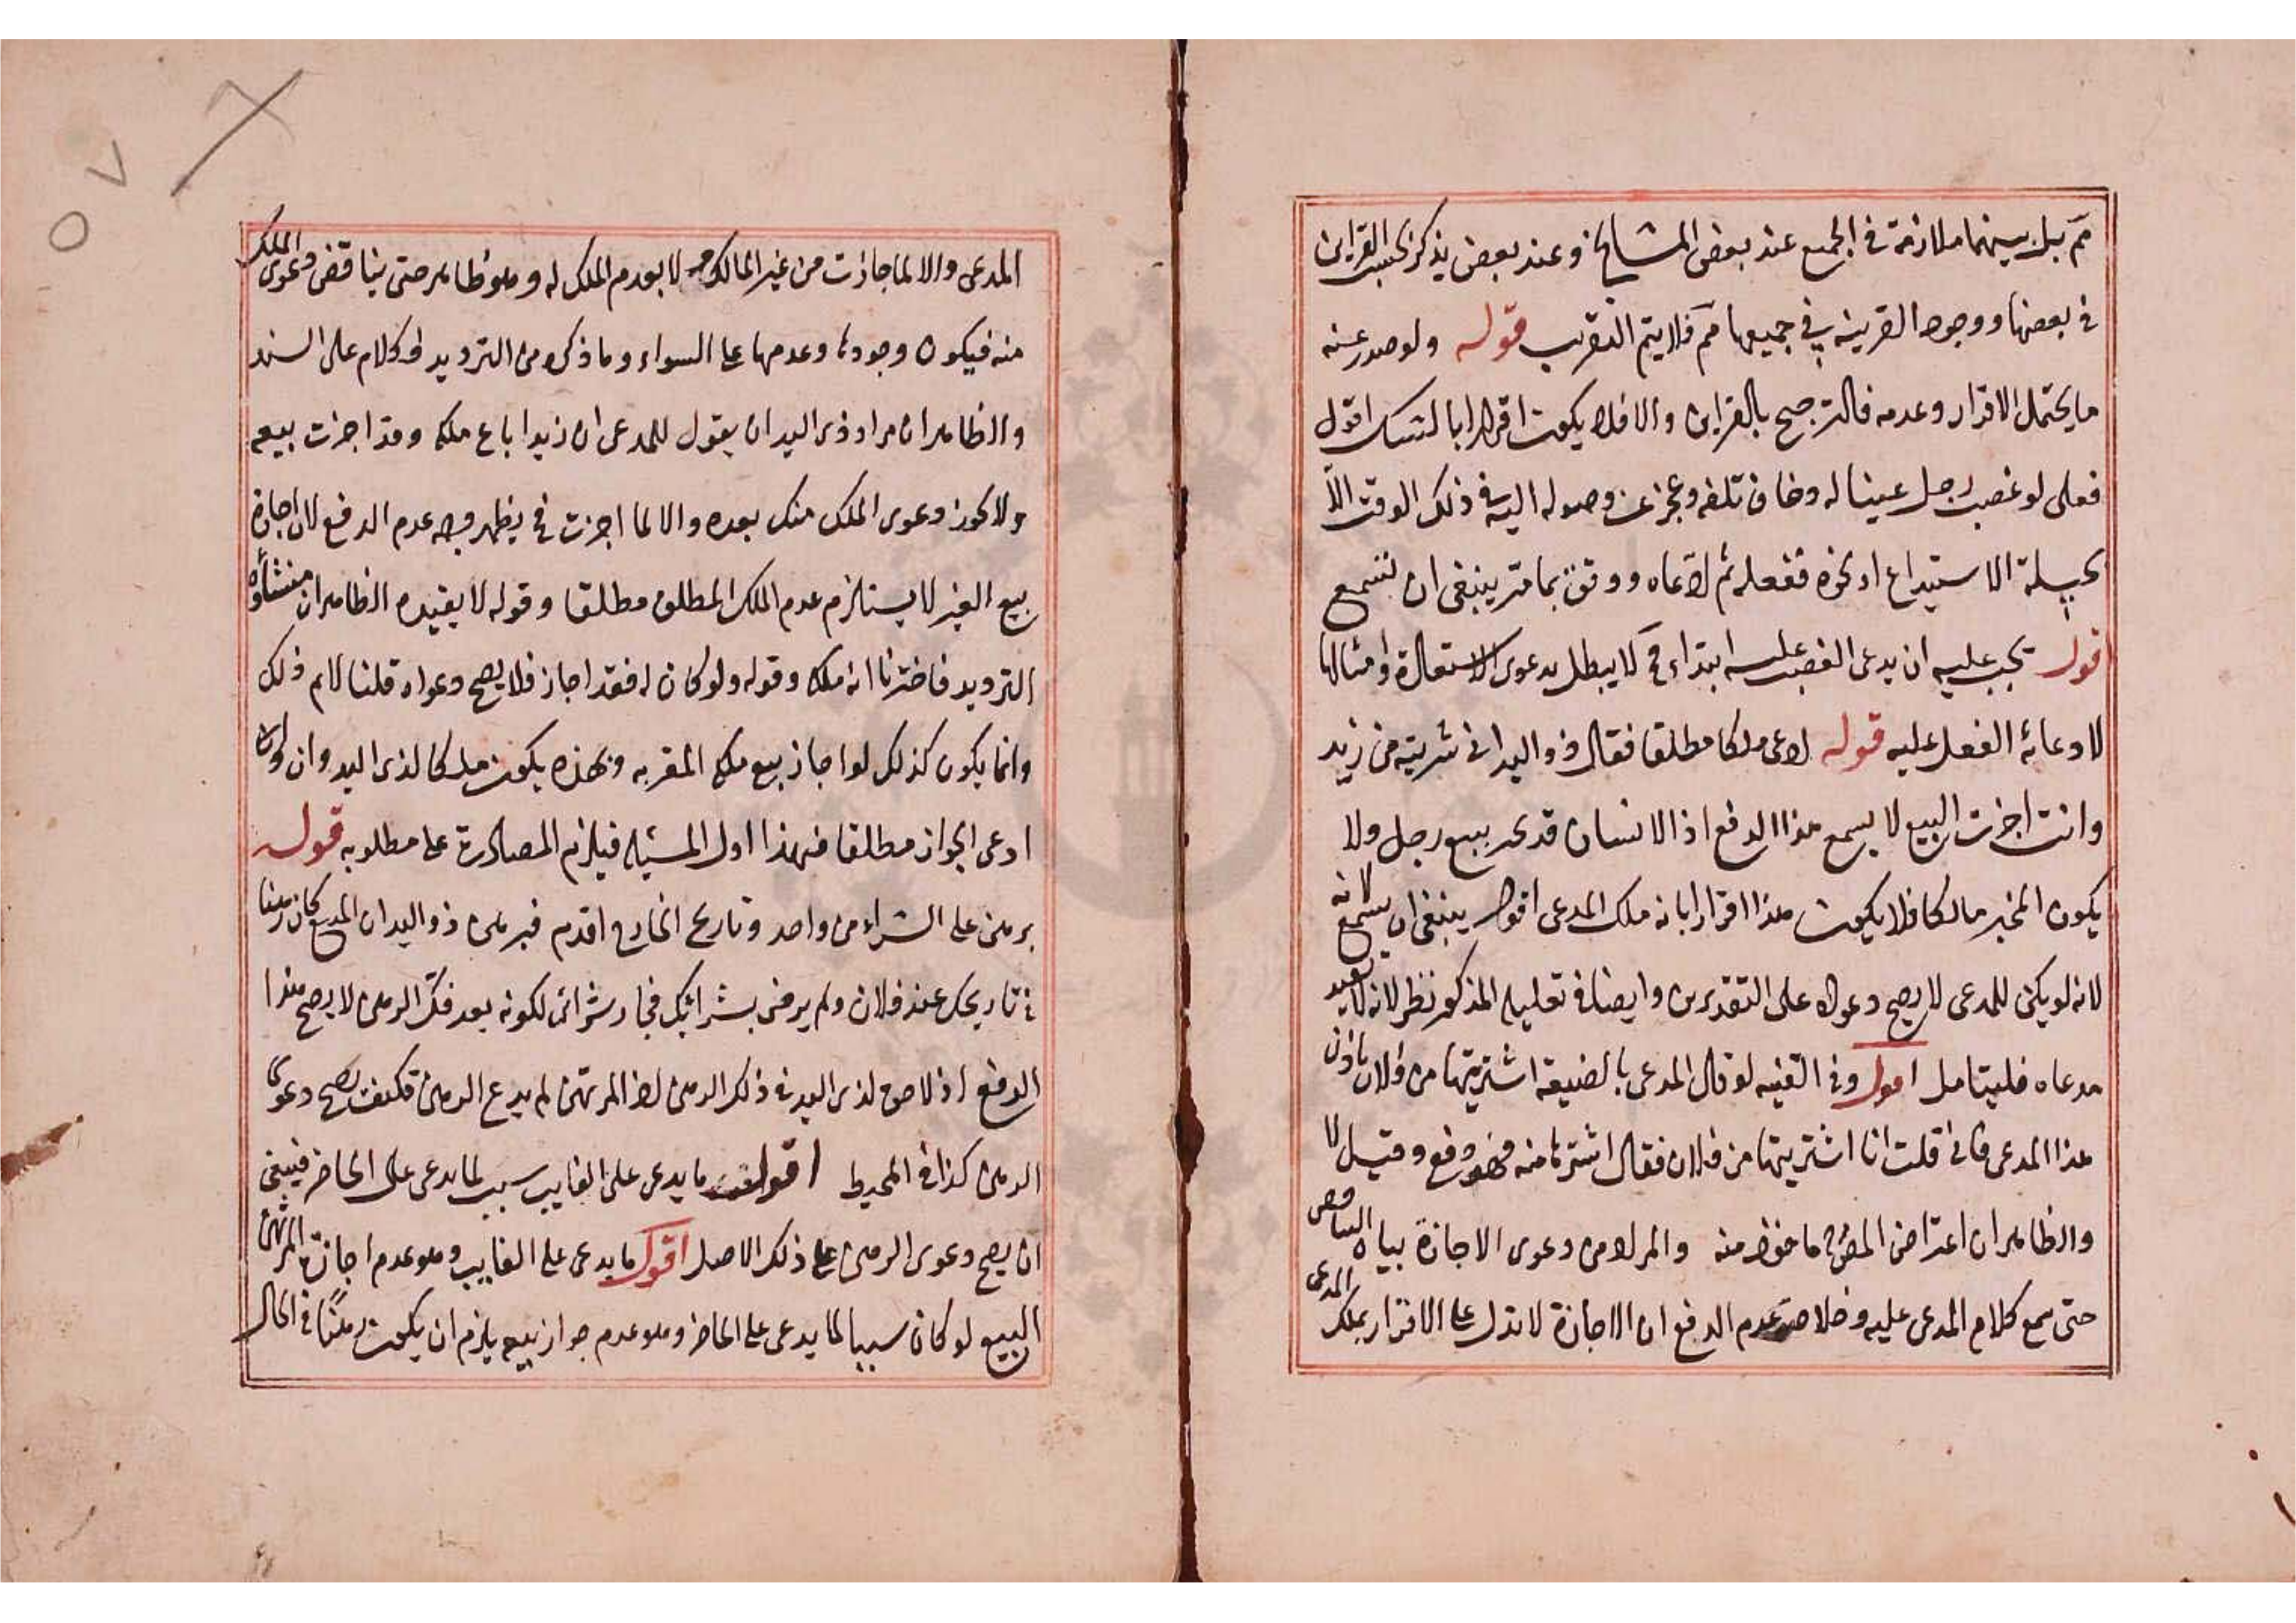 مم بل بينهما ملازمة في الجميع عند بعض المشايخ وعند بعض يذكر بحسب القراين
في بعضها ووجود القرينة في جميعها مم فلا يتم التقريب قوله ولو صدر عنه
ما يحتمل الاقرار وعدمه فالترجيح بالقراين والا فلا يكون اقرارا بالشك اقول
فعلى لو غصب رجل عينا له وخاف تلفه وعجز عن وصوله اليه في ذلك الوقت الا
بحيلة الاستيداع او نحوه ففعله ثم ادعاه ووفق بما مر ينبغي ان تسمع
قول يجب عليه ان يدعى الغصب عليه ابتداء كى لا يبطل بدعوى الاستعارة وامثالها
لادعائه الفعل عليه قوله ادعى ملكا مطلقا فقال ذو اليد انى شريته من زيد
وانت اجزت البيع لا يسمع هذا الدفع اذ الانسان قد يجيز بيع رجل ولا
يكون المخبر مالكا فلا يكون هذا اقرارا بانه ملك المدعى اقول ينبغي ان يسمع لانه
لانه لو يكن للمدعى لا يصح دعواه على التقديرين وايضا في تعليله المذكور نظر لانه لا يفيد
مدعاه فليتامل اقول وفي القنيه لو قال المدعى بالضيعة اشتريتها من فلان باذن
هذا المدعى فانى قلت انا اشتريتها من فلان فقال اشترها منه فهو دفع وقيل لا
والظاهر ان اعتراض المص ماخوذ منه والمراد من دعوى الاجازة بيان
حتى سمع كلام المدعى عليه وخلاصة عدم الدفع ان الاجازة لا تدل على الاقرار بملك المدعى
المدعى والا لما جازت من غير المالك لا بعدم الملك له وهو ظاهر حتى يناقض دعوى الملك
منه فيكون وجودها وعدمها على السواء وما ذكره من الترديد كلام على السند
والظاهر ان مراد ذى اليد ان يقول للمدعى ان زيدا باع ملكه وقد اجزت بيعه
ولا يجوز دعوى الملك منك بعده والا لما اجزت فح يظهر وجه عدم الدفع لان اجازة
بيع الغير لا يستلزم عدم الملك المطلق مطلقا وقوله لا يفيده الظاهر ان منشأه
الترديد فاخترنا انه ملكه وقوله ولو كان له فقد اجاز فلا يصح دعواه قلنا لانم ذلك
وانما يكون كذلك لو اجاز بيع ملكه المقر به وبهذه يكون ملكا لذى اليد وان
ادعى الجواز مطلقا فهذا اول المسئله فيلزم المصادرة على مطلوبه قوله
برهن على الشراء من واحد وتاريخ الخارج اقدم فبرهن ذو اليد ان المبيع كان رهنا
في تاريخك عند فلان ولم يرض بشرائك فجاز شرائى لكونه بعد فك الرهن لا يصح هذا
الدفع اذ لا حق لذى اليد في ذلك الرهن اذ المرتهن لم يدع الرهن فكيف يصح دعوى
الرهن كذا في المحيط اقول ما يدعى على الغايب سبب لما يدعى على الحاضر فينبغي
ان يصح دعوى الرهن على ذلك الاصل اقول ما يدعى على الغايب وهو عدم اجازة المرتهن
البيع لو كان سببا لما يدعى على الحاضر وهو عدم جواز بيعه يلزم ان يكون رهنا في الحال
٥٧